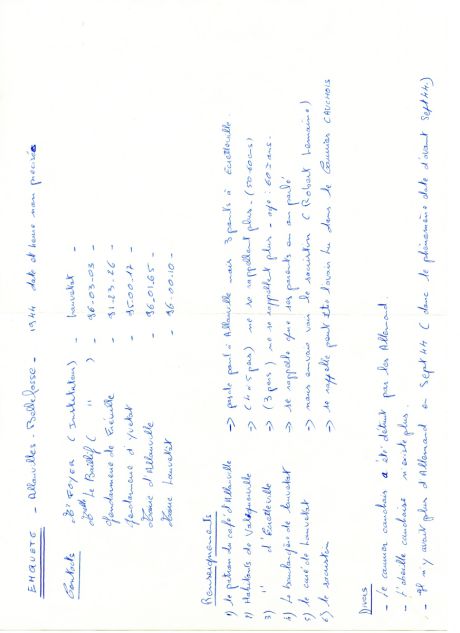 ENQUETE - Allouville-Bellefosse - 1944 date et heure non précisée
Contacts
- Mr FOYER (Instituteur) - Louvetot -
- Mr Le Baillif ( " ) - 96-03-03 -
- gendarmerie de - 91-23-26 -
- gendarmerie d'Yvetot - 95-00-17 -
- Mairie d'Allouville - 96.01.65 -
- Mairie Louvetot - 96-00-10 -
Renseignements
1) le patron du café d'Allouville -> pas de pont à Allouville mais 3 ponts à Ecretteville.
2) Habitants de Valliquerville -> (4 à 5 pers) ne se rappellent plus - (50-60 ans)
3) " d'Ecretteville -> (3 pers) ne se rappellent plus - age : 60 ans.
4) la boulangère de Louvetot -> se rappelle que ses parents en ont parlé
5) le curé de Louvetot -> nous envoie voir le sacristain (Robert Lemaine)
6) le sacristain -> se rappelle peut être l'avoir lu dans le Courrier CAUCHOIS
Divers
- le courrier cauchois a été détruit par les Allemands.
- l'abeille cauchoise n'existe plus.
- il n'y avait plus d'Allemand en Sept 44 (donc le phénomène date d'avant Sept 44.)